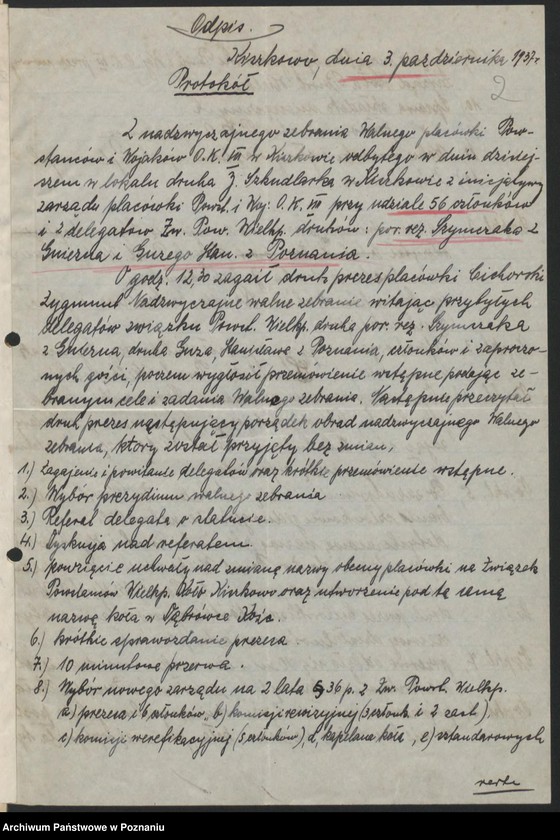 Odpis.
Kiszkowo, dnia 3. października 1937 r
2
Protokół
Z nadzwyczajnego zebrania Walnego placówki Pow-
stańców i Wojaków O.K. VII w Kiszkowie odbytego w dniu dzisiej-
szem w lokalu druha J. Szkudlarka w Kiszkowie z inicjatywy
zarządu placówki Powst. i Woj. O.K. VII przy udziale 56 członków
i 2 delegatów Zw. Pow. Wielkp. druhów: por. rez. Szymczaka z
Gniezna i Guzego Stan. z Poznania.
O godz. 12,30 zagaił druh prezes placówki Cichorski
Zygmunt Nadzwyczajne walne zebranie witając przybyłych
delegatów związku Powst. Wielkp. druha por. rez. Szymczaka
z Gniezna, druha Guza, Stanisława z Poznania, członków i zaproszo-
nych gości, poczem wygłosił przemówienie wstępne podając ze-
branym cele i zadania Walnego zebrania. Następnie przeczytał
druh prezes następujący porządek obrad nadzwyczajnego Walnego
zebrania, który został przyjęty bez zmian,
1.) Zagajenie i powitanie delegatów oraz krótkie przemówienie wstępne.
2.) Wybór prezydium walnego zebrania
3.) Referat delegata o statucie.
4.) Dyskusja nad referatem
5.) Powzięcie uchwały nad zmianą nazwy obecnej placówki na Związek
Powstańców Wielkp. Koło Kiszkowo oraz utworzenie pod tą samą
nazwą koła w Dąbrówce Kośc.
6.) krótkie sprawozdanie prezesa
7.) 10 minutowa przerwa.
8.) Wybór nowego zarządu na 2 lata § 36 p. 2 Zw. Powst. Wielkp.
a) prezesa i 6 członków, b) komisji rewizyjnej (3 członk i 2 zast)
c) komisji weryfikacyjnej (5 członków), d, kapelana koła, e) sztandarowych
verte
Archiwum Państwowe w Poznaniu